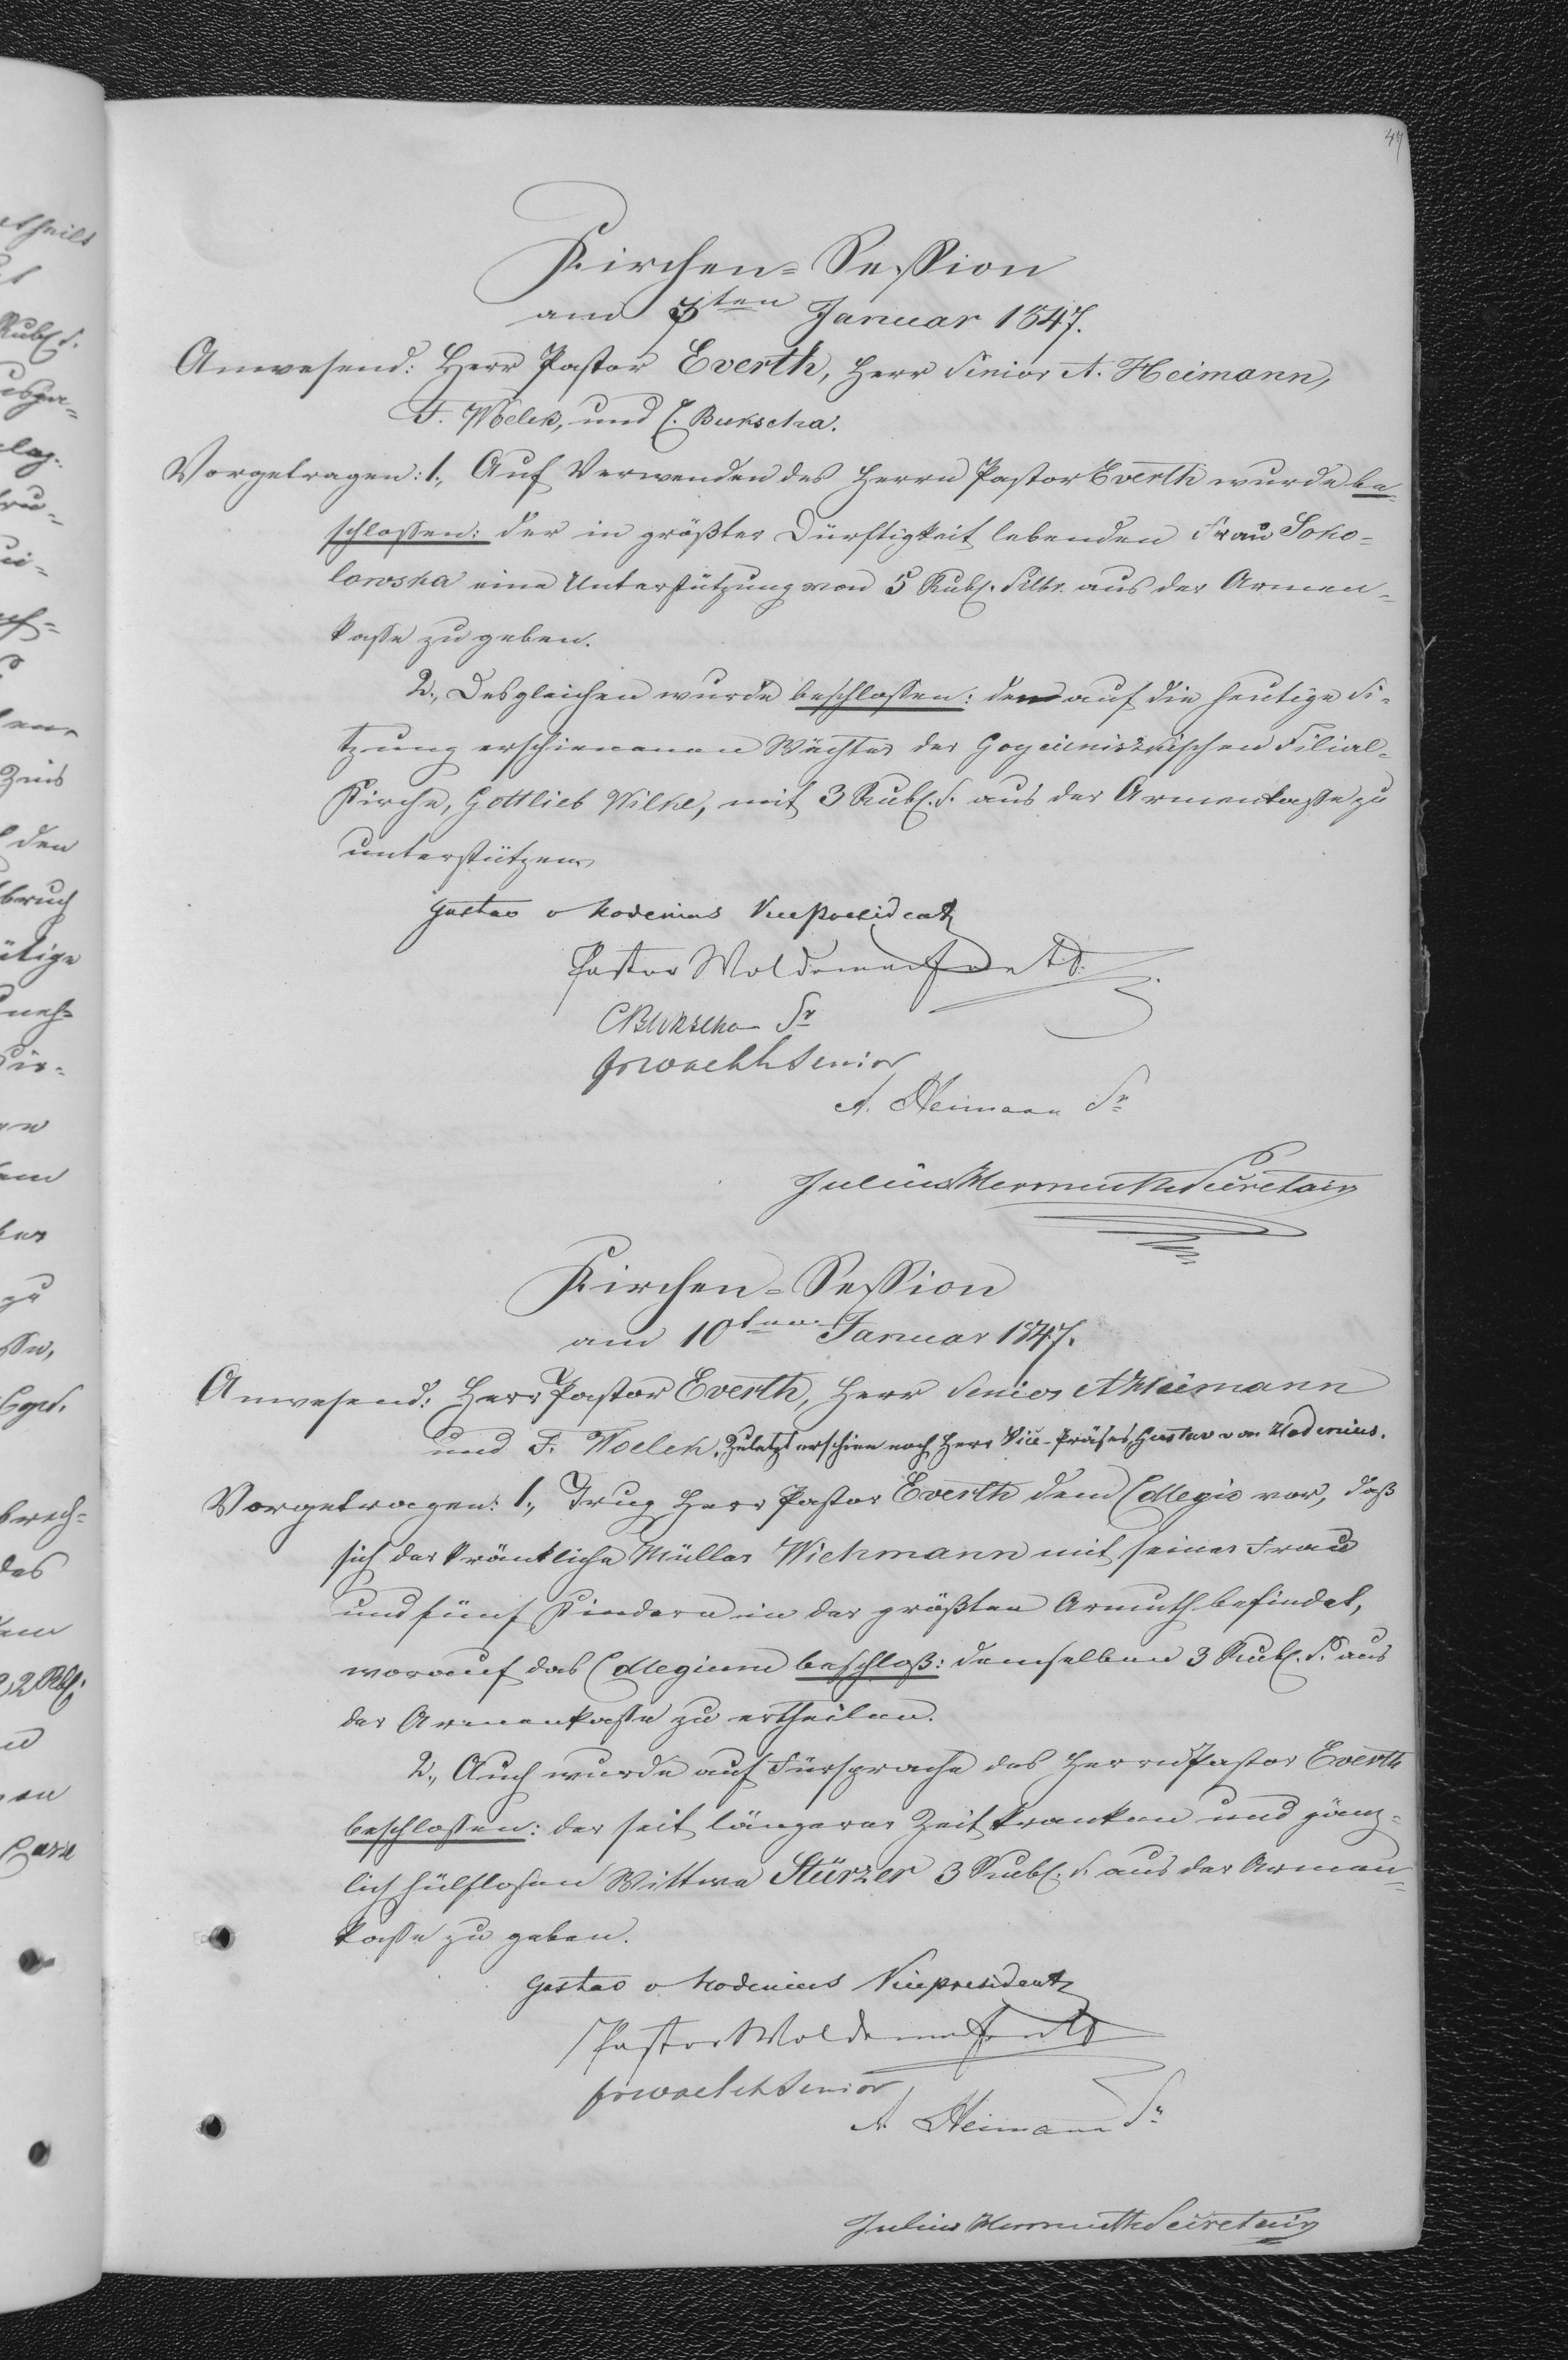 47
Kirchen-Session
am 3ten Januar 1847.
Anwesend: Herr Pastor Everth, Herr Senior A. Heimann,
F. Woelck, und C. Bukscha.
Vorgetragen: 1., Auf Verwenden des Herrn Pastor Everth wurde be-
schlossen: der in größter Dürftigkeit lebenden Frau Soko-
lowska eine Unterstützung von 5 Rubl. Silbr. aus der Armen-
kasse zu geben.
2., Desgleichen wurde beschlossen: dem auf die heutige Si-
tzung erschienenen Wächter der Filial-
Kirche, Gottlieb Wilke, mit 3 Rubl. S. aus der Armenkasse zu
unterstützen.
Gustav v Modenius Vicepresident
Pastor Woldemar Everth.
CBukscha Sr
Senior
A. Heimann Sr
Julius Hermuth Secretair
Kirchen-Session
am 10ten Januar 1847.
Anwesend: Herr Pastor Everth, Herr Senior A Heimann
und F. Woelck. Zuletzt erschien noch Herr Vice-Präses, Gustav von Modenius.
Vorgetragen: 1., Trug Herr Pastor Everth dem Collegio vor, daß
sich der kränkliche Müller Wichmann mit seiner Frau
und fünf Kindern in der größten Armuth befindet,
worauf das Collegium beschloß: demselben 3 Rubl. S. aus
der Armenkasse zu ertheilen.
2., Auch wurde auf Fürsprache des Herrn Pastor Everth
beschlossen: der seit längerer Zeit kranken und gänz-
lich hülflosen Wittwe Stürzer 3 Rubl. S. aus der Armen-
kasse zu geben.
Gustav v Modenius Vicepresident
Pastor Woldemar Everth
Senior
A. Heimann Sr
Julius Hermuth Secretair